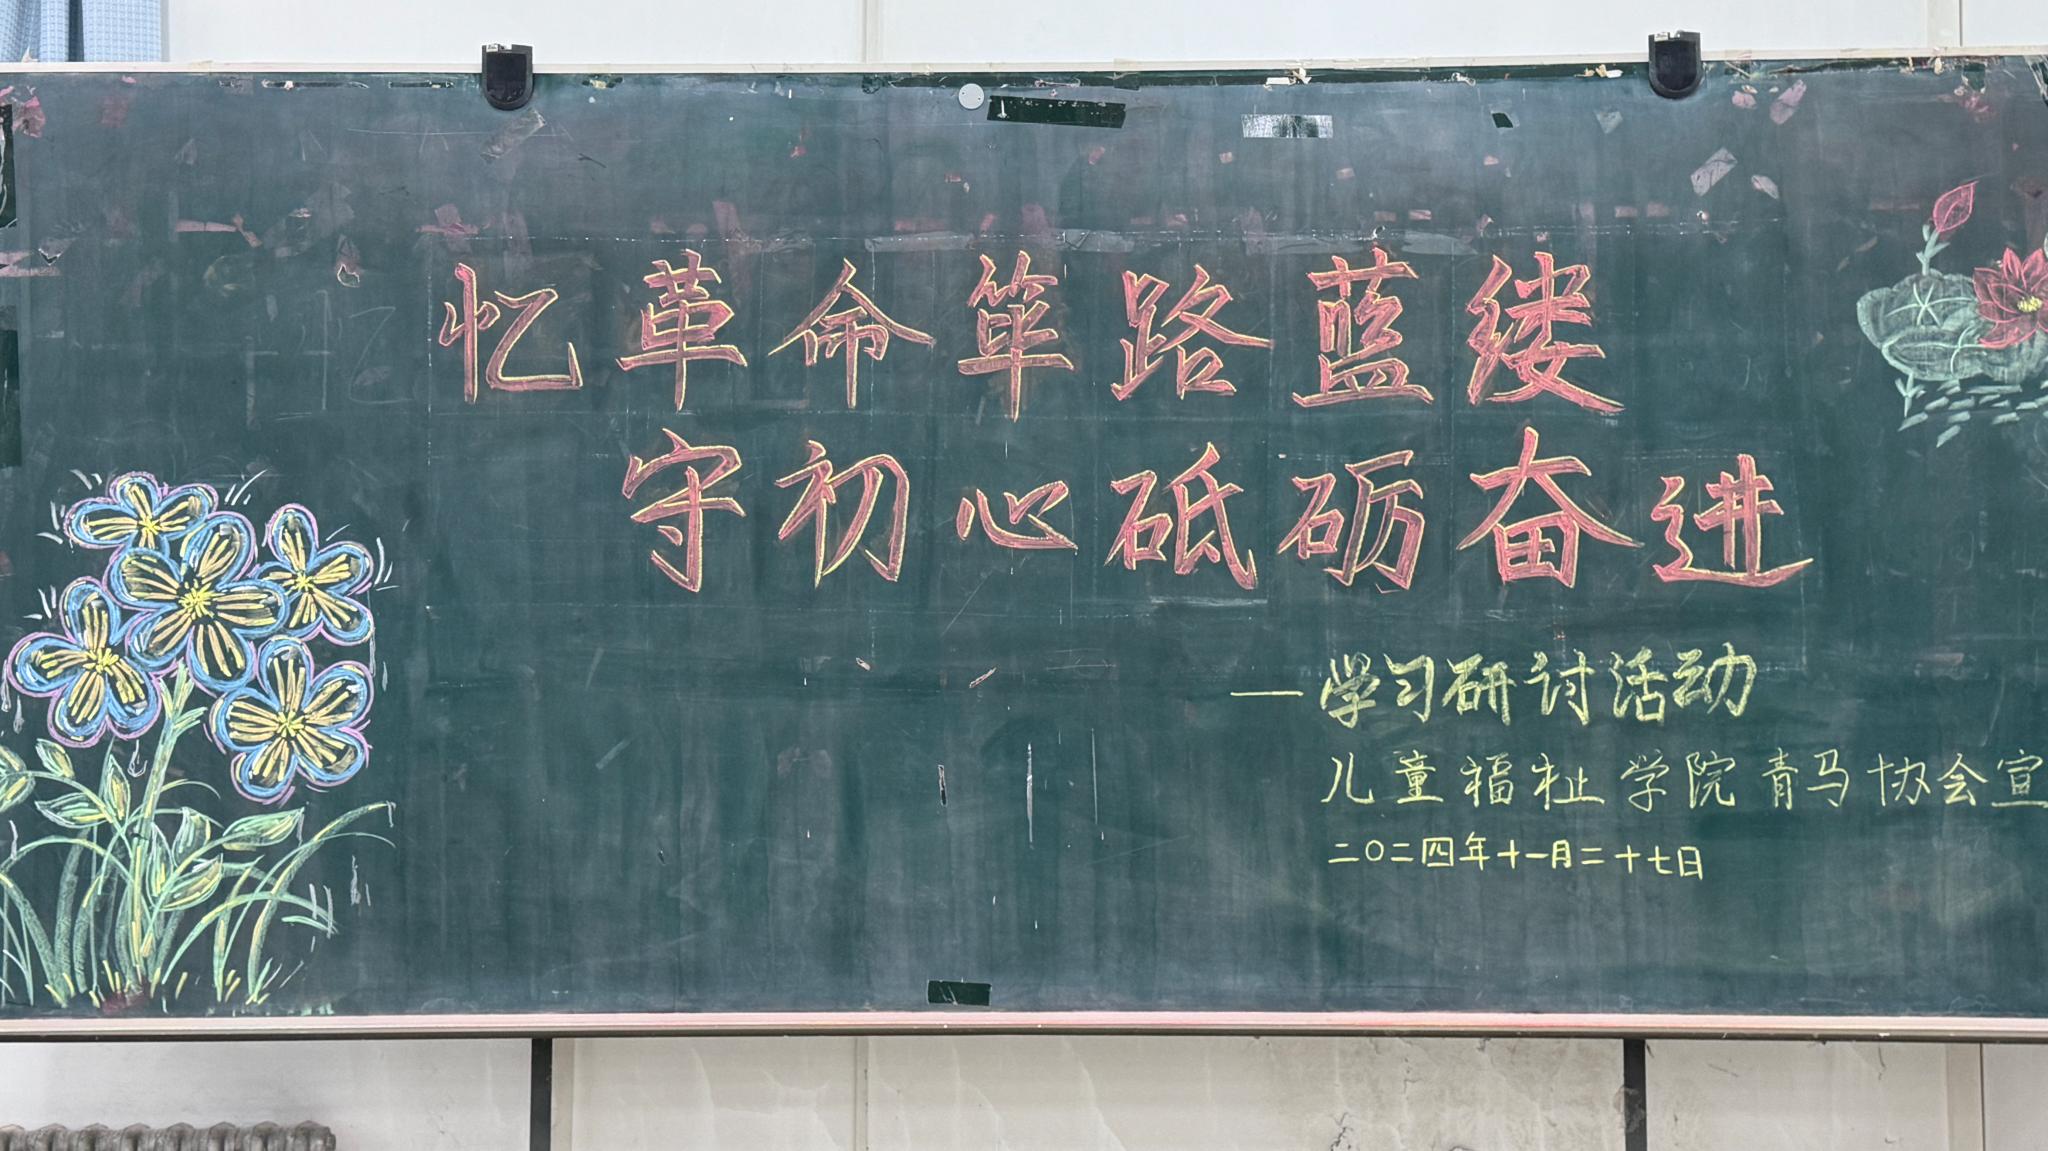 忆革命筚路蓝缕
守初心砥砺奋进
—学习研讨活动
儿童福祉学院青马协会宣
二〇二四年十一月二十七日